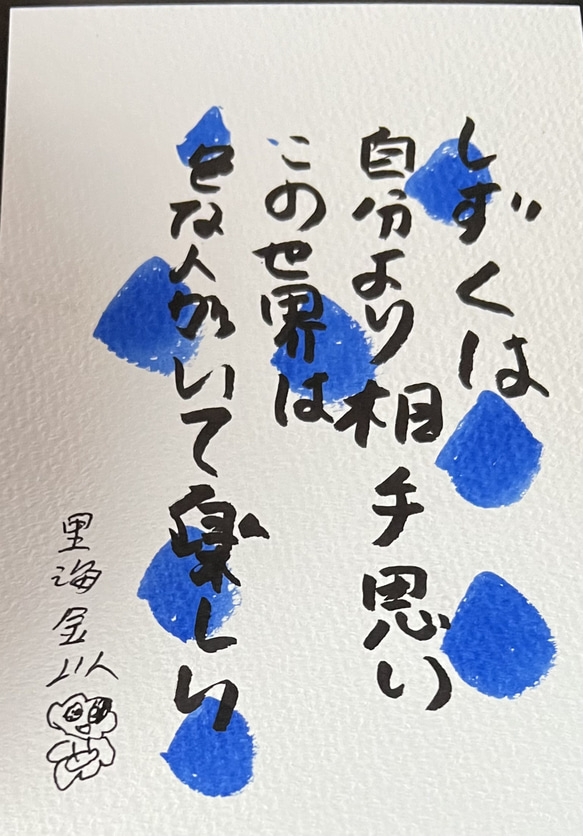 しずくは
自分より相手思い
この世界は
色な人がいて楽しい
里海